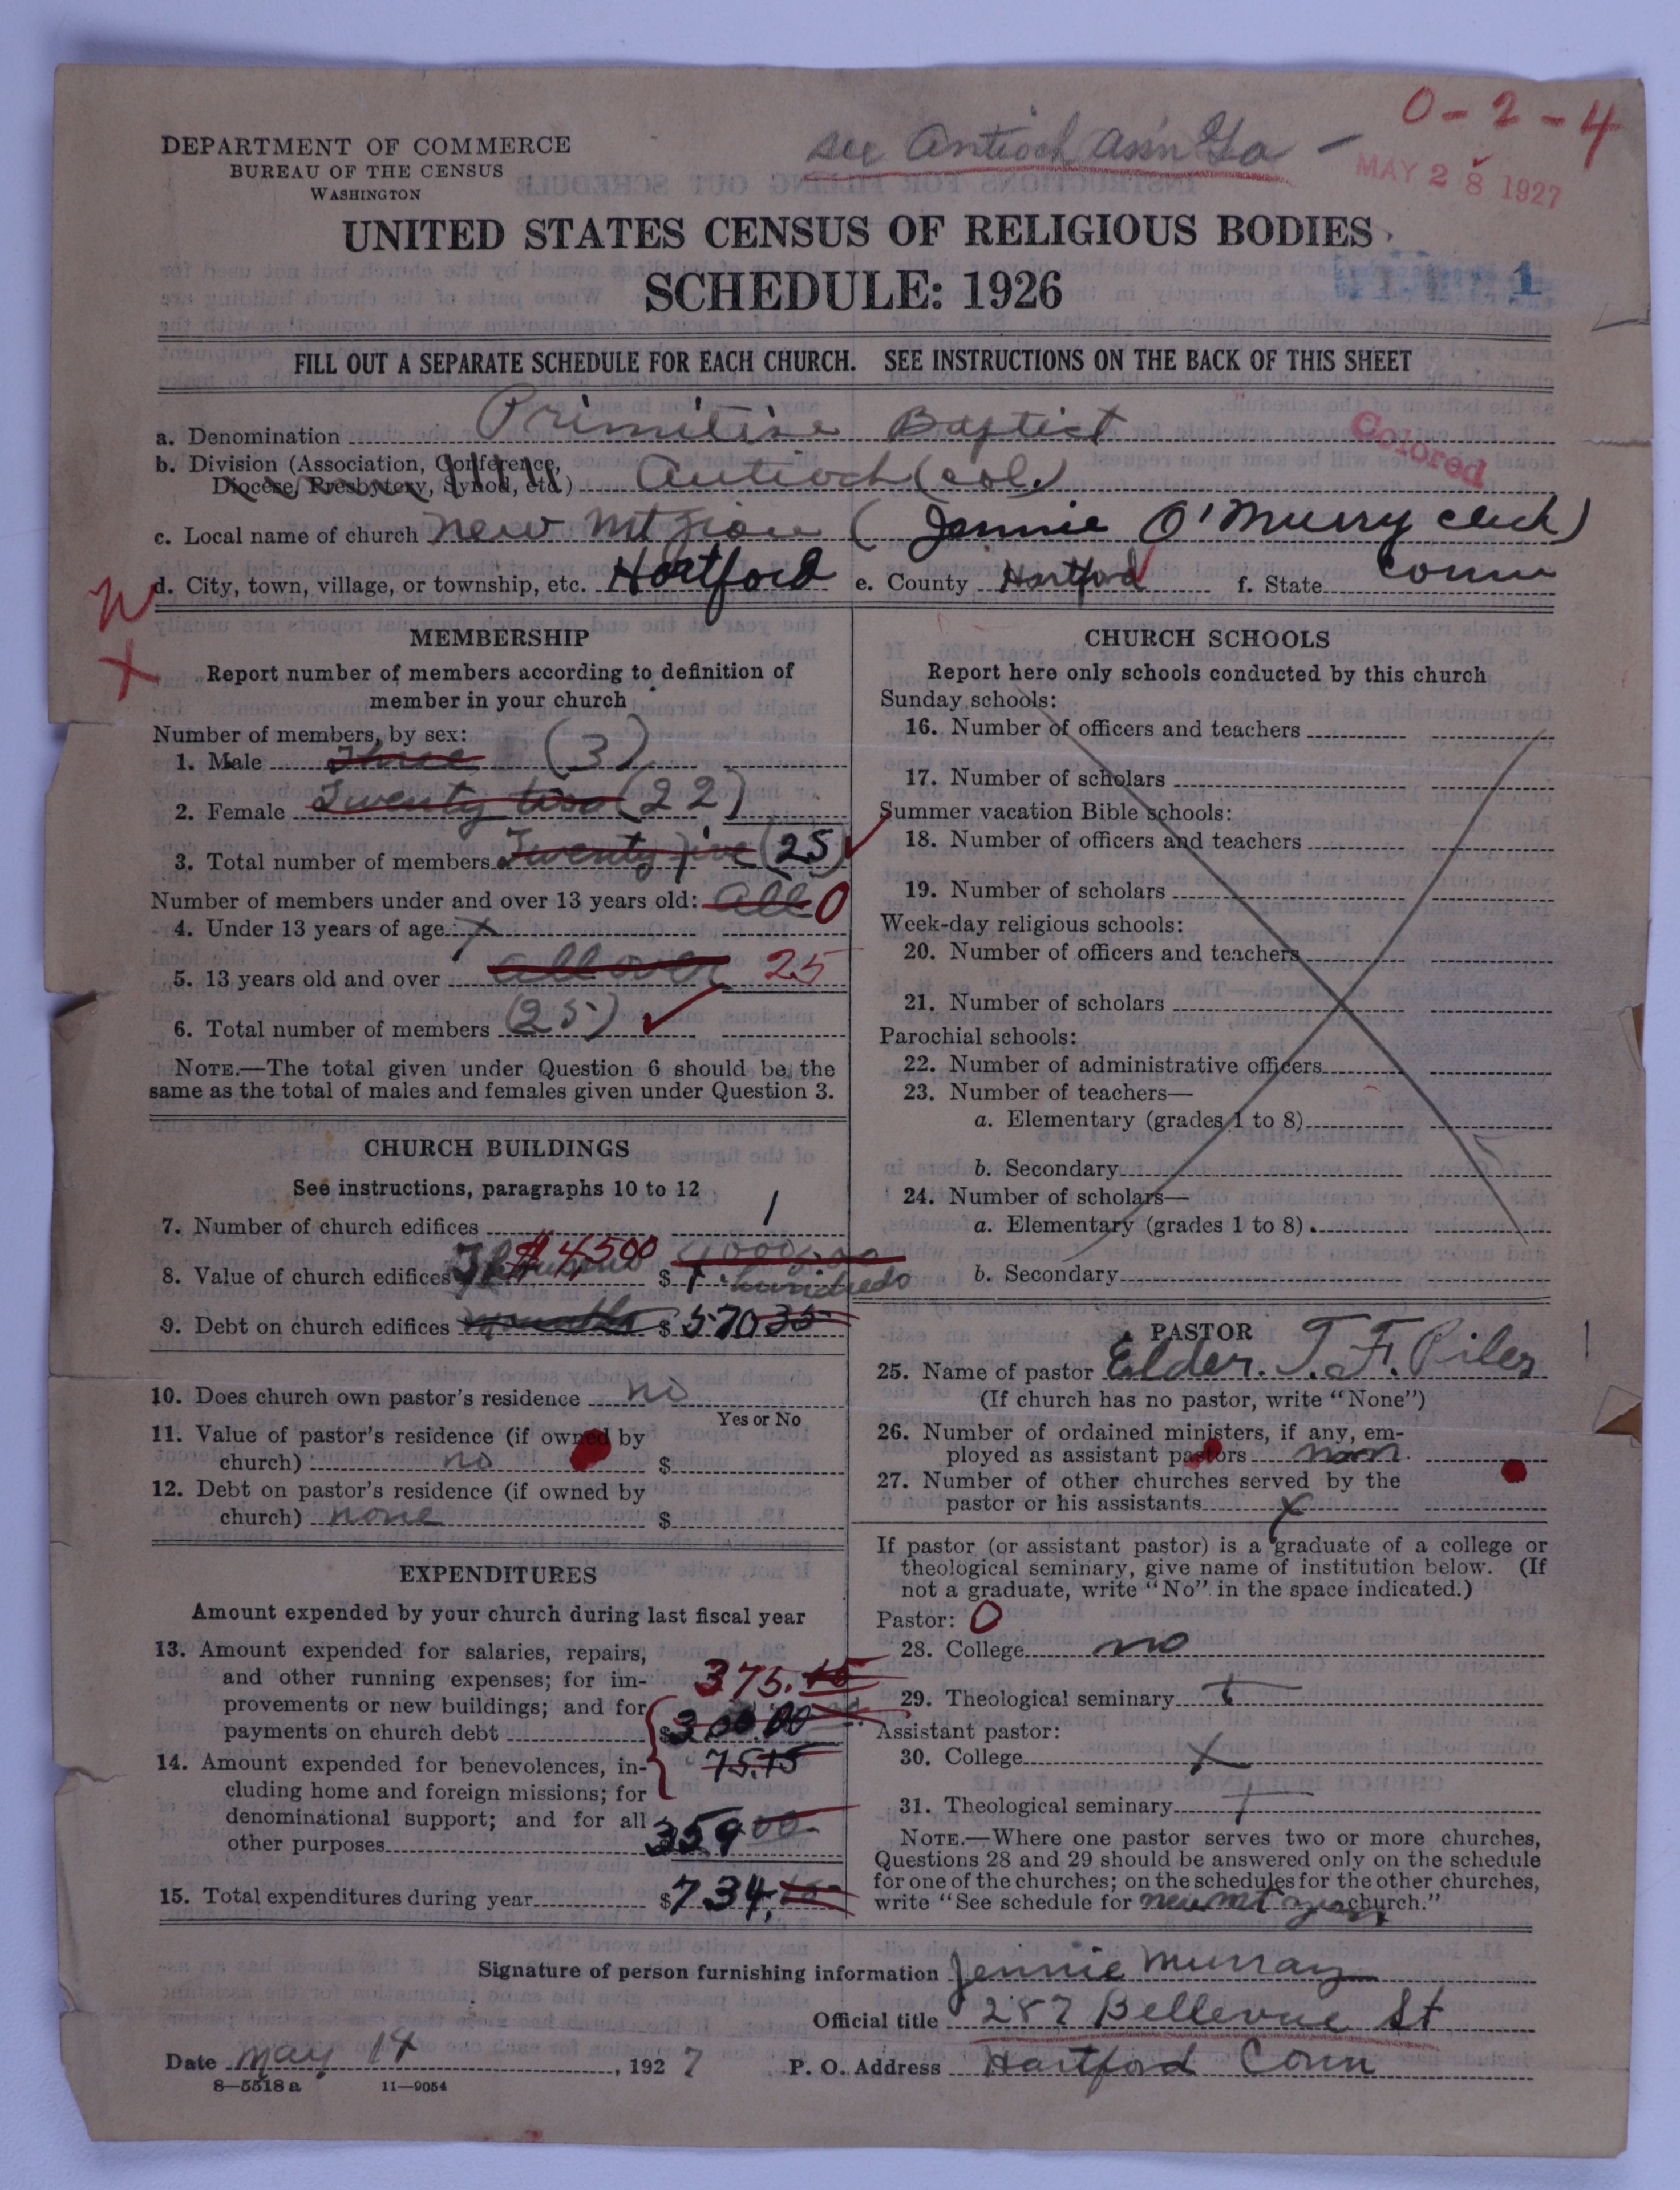 see Antioch Ass'n Ga -
0-2-4
MAY 28 1927
DEPARTMENT OF COMMERCE
BUREAU OF THE CENSUS
WASHINGTON
UNITED STATES CENSUS OF RELIGIOUS BODIES
SCHEDULE: 1926
1
FILL OUT A SEPARATE SCHEDULE FOR EACH CHURCH. SEE INSTRUCTIONS ON THE BACK OF THIS SHEET
a. Denomination Primitive Baptist
Colored
b. Division (Association, Conference,
Diocese, Presbytery, Synod, etc.) Antioch (col.)
c. Local name of church New Mt Zion (Jennie O'Murry clerk)
d. City, town, village, or township, etc. Hartford e. County Hartford f. State Conn
MEMBERSHIP
Report number of members according to definition of
member in your church
Number of members, by sex:
1. Male Three (3)
2. Female Twenty two (22)
3. Total number of members Twenty five (25)
Number of members under and over 13 years old: All 0
4. Under 13 years of age x
5. 13 years old and over all over 25
6. Total number of members (25)
NOTE.—The total given under Question 6 should be the
same as the total of males and females given under Question 3.
CHURCH BUILDINGS
See instructions, paragraphs 10 to 12
7. Number of church edifices 1
8. Value of church edifices $4,500 $ hundreds
9. Debt on church edifices $ 570 35
10. Does church own pastor's residence no
Yes or No
11. Value of pastor's residence (if owned by
church) no $
12. Debt on pastor's residence (if owned by
church) none $
EXPENDITURES
Amount expended by your church during last fiscal year
13. Amount expended for salaries, repairs,
and other running expenses; for im-
provements or new buildings; and for
payments on church debt 375.15 $300.00
14. Amount expended for benevolences, in- 75.15
cluding home and foreign missions; for
denominational support; and for all
other purposes 359 00
15. Total expenditures during year $734.15
CHURCH SCHOOLS
Report here only schools conducted by this church
Sunday schools:
16. Number of officers and teachers
17. Number of scholars
Summer vacation Bible schools:
18. Number of officers and teachers
19. Number of scholars
Week-day religious schools:
20. Number of officers and teachers
21. Number of scholars
Parochial schools:
22. Number of administrative officers
23. Number of teachers—
a. Elementary (grades 1 to 8)
b. Secondary
24. Number of scholars—
a. Elementary (grades 1 to 8)
b. Secondary
PASTOR
25. Name of pastor Elder. T. F. Piles
(If church has no pastor, write "None")
26. Number of ordained ministers, if any, em-
ployed as assistant pastors
27. Number of other churches served by the
pastor or his assistants x
If pastor (or assistant pastor) is a graduate of a college or
theological seminary, give name of institution below. (If
not a graduate, write "No" in the space indicated.)
Pastor: 0
28. College no
29. Theological seminary
Assistant pastor:
30. College x
31. Theological seminary
NOTE.—Where one pastor serves two or more churches,
Questions 28 and 29 should be answered only on the schedule
for one of the churches; on the schedules for the other churches,
write "See schedule for new mt zion church."
Signature of person furnishing information Jennie Murray
Official title 287 Bellevue St
Date May 14, 1927 P. O. Address Hartford Conn
8—5518 a 11—9054